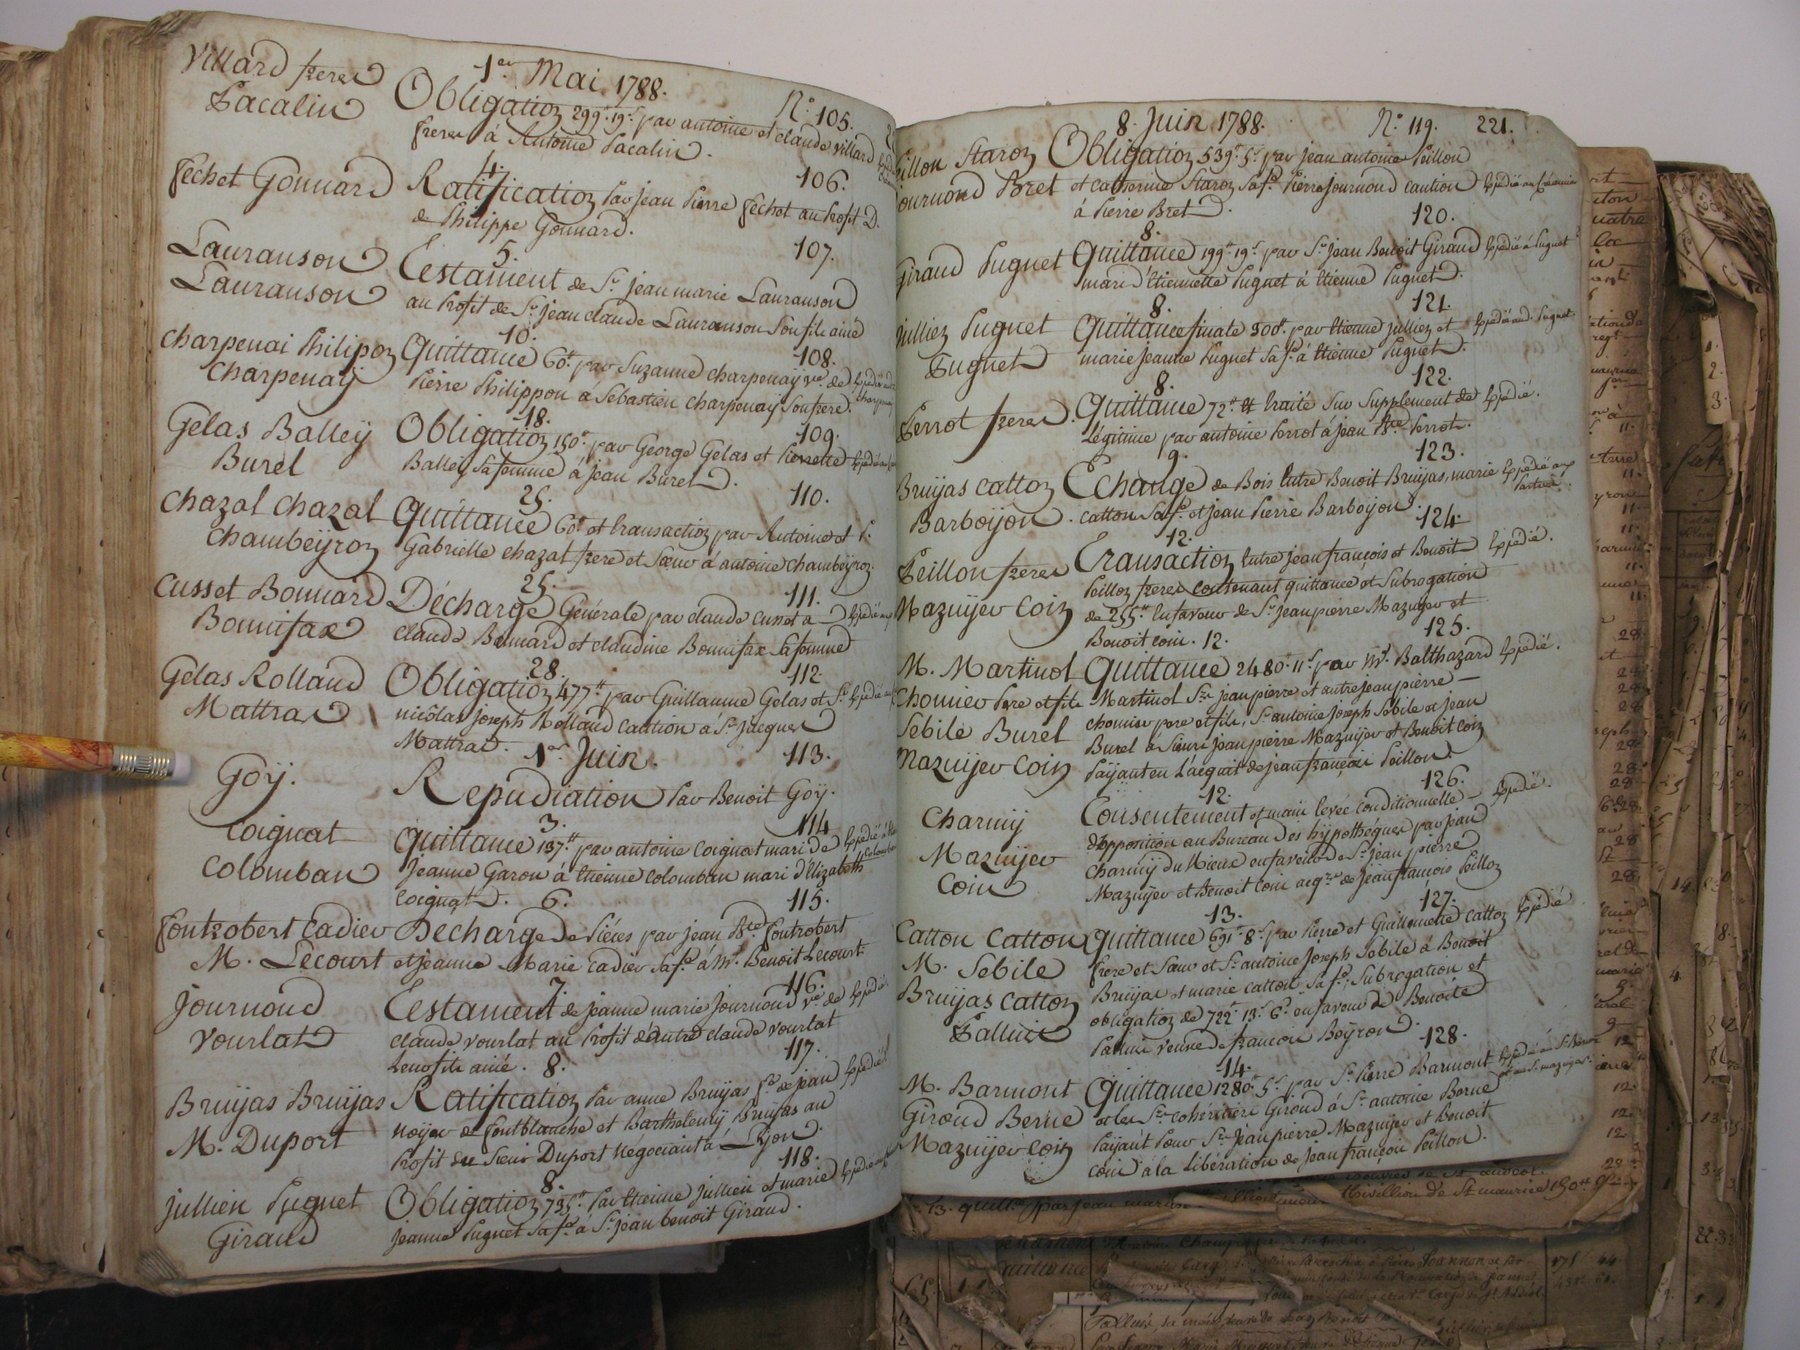 Villard freres
Pacalin
1er Mai 1788.
N.° 105.
Obligation 299# 19s par antoine et claude Villard
freres à Antoine Pacalin.
fechet Gonnard
4.
106.
Ratification par Jean Pierre fechet au Profit
de Philippe Gonnard.
Lauranson
Lauranson
5.
107.
Testament de Sr. Jean marie Lauranson
au Profit de Sr. Jean claude Lauranson Son fils ainé
Charpenai Philipon
Charpenaÿ
10.
108.
Quittance 60# par Suzanne charpenaÿ ve. de
Pierre Philippon à Sébastien charpenaÿ Son frere.
Gelas Balleÿ
Burel
18.
109.
Obligation 150# par George Gelas et Pierrette
Balleÿ Sa femme à jean Burel.
Chazal Chazal
Chambeyron
25.
110.
Quittance 60# et transaction par Antoine et
Gabrielle chazal frere et Sœur à antoine chambeÿron.
Cusset Bonnard
Bonnifax
25.
111.
Décharge Générale par claude Cusset à
claude Bonnard et claudine Bonnifax Sa femme
Gelas Rolland
Mattras
28.
112.
Obligation 477# par Guillaume Gelas et Sr.
nicolas Joseph Rolland caution à Sr. Jacques
Mattras.
1er Juin.
113.
Goÿ.
Repudiation Par Benoit Goÿ.
Coignat
Colomban
3.
114
Quittance 137# par antoine Coignat mari de
Jeanne Garon à Etienne Colomban mari d'Elizabeth
Coignat.
6.
115.
fontrobert Cadier
M. Lecourt
Decharge de Pieces par jean Bte. fontrobert
et jeanne Marie Cadier Sa fe. à Mr. Benoit Lecourt.
Journoud
Vourlat
7.
116.
Testament de jeanne marie Journoud ve. de Expédié.
claude vourlat au Profit d'autre claude vourlat
Leur fils ainé.
8.
117.
Bruÿas Bruÿas
M. Duport
Ratification Par anne Bruÿas fe. de jean Expédié
noÿer de fontblanche et Barthelemÿ Bruÿas au
Profit du Sieur Duport Négociant à Lÿon.
8.
118.
Jullien Puguet
Giraud
Obligation 735# Par Etienne Jullien et marie
Jeanne Puguet Sa fe. à Sr. jean benoit Giraud.
8. Juin 1788.
N.° 119.
221.
Peillon Staron
Journoud Bret
Obligation 539# 5s par jean antoine Peillon
et Catherine Staron Sa fe. Pierre Journoud caution Expédié au Créancier
à Pierre Bret.
8.
120.
Giraud Puguet
Quittance 199# 19s par Sr. Jean Benoit Giraud Expédié à Puguet
mari d'Etiennette Puguet à Etienne Puguet.
8.
121.
Jullien Puguet
Puguet
Quittance finale 300# par Etienne jullien et Expédié aud. Puguet
marie jeanne Puguet Sa fe. à Etienne Puguet.
8.
122.
Perrot freres.
Quittance 72# et traité Sur Supplement de Expédié.
Légitime par antoine Perrot à jean Bte. Perrot.
9.
123.
Bruÿas Catton
Barboÿon.
Echange de Bois Entre Benoit Bruÿas, marie Expedié aux
Parties.
Catton Sa fe. et jean Pierre Barboÿon.
12.
124.
Peillon freres
Mazuÿer Coin
Transaction Entre jean françois et Benoit Expédié.
Peillon freres Contenant quittance et Subrogation
de 255# En faveur de Sr. jean pierre Mazuÿer et
Benoit Coin.
12.
125.
M. Martinol
Chomier Pere et fils
Sebile Burel
Mazuijer Coin
Quittance 2480# 11s par Mr. Balthazard Expédié.
Martinol Srs. jean pierre et autre jean pierre
chomier pere et fils, Sr. antoine joseph Sebile et jean
Burel à Sieurs jean pierre Mazuijer et Benoit Coin
Païant en L'acquit de jean françois Peillon
12.
126.
Charmÿ
Mazuijer
Coin
Consentement et main levée conditionnelle Expédié.
d'opposition au Bureau des hÿpothéques par jean
Charmÿ du Rieux en faveur de Sr. jean pierre
Mazuijer et Benoit Coin acqrs. de jean françois Peillon
13.
127.
Catton Catton
M. Sebile
Bruÿas Catton
Palluis
Quittance 691# 8s par Pierre et Guillemette Catton Expédié
frere et Sœur et Sr. antoine Joseph Sebile à Benoit
Bruÿas et marie catton Sa fe. Subrogation et
obligation de 722# 13s 6d en faveur de Benoite
Palluis veuve de françois Boÿron.
14.
128.
M. Barmont
Giroud Berne
Mazuÿer Coin
Quittance 1280# 5s par Sr. Pierre Barmont
et les Srs. Cohéritiers Giroud à Sr. antoine Berne
Païant Pour Sr. jean pierre Mazuijer et Benoit
Coin à la Libération de jean françois Peillon.